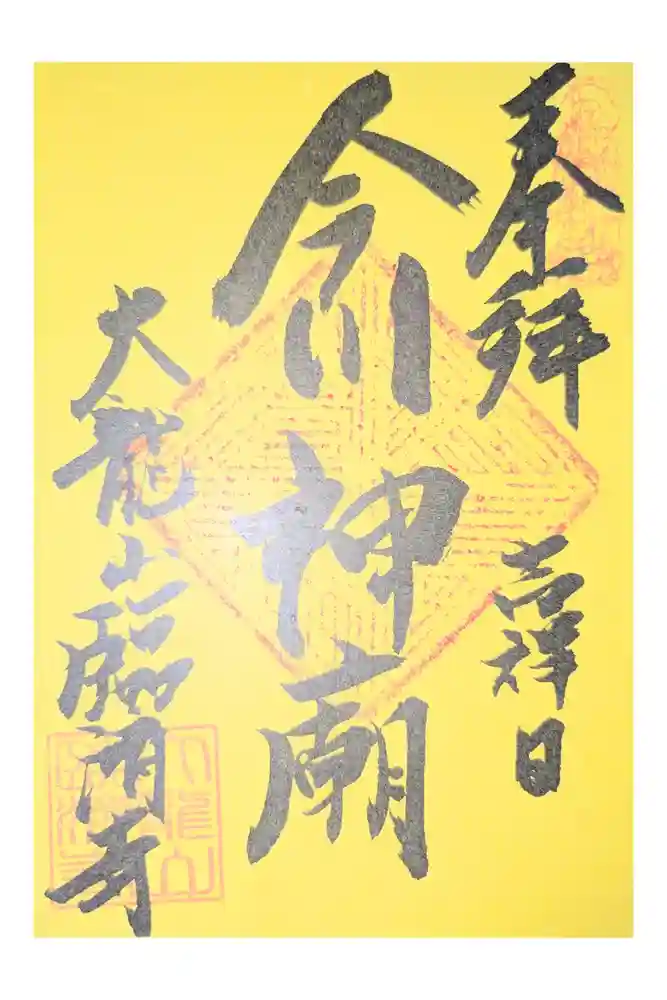 奉拝
吉祥日
今川神廟
大龍山臨済寺